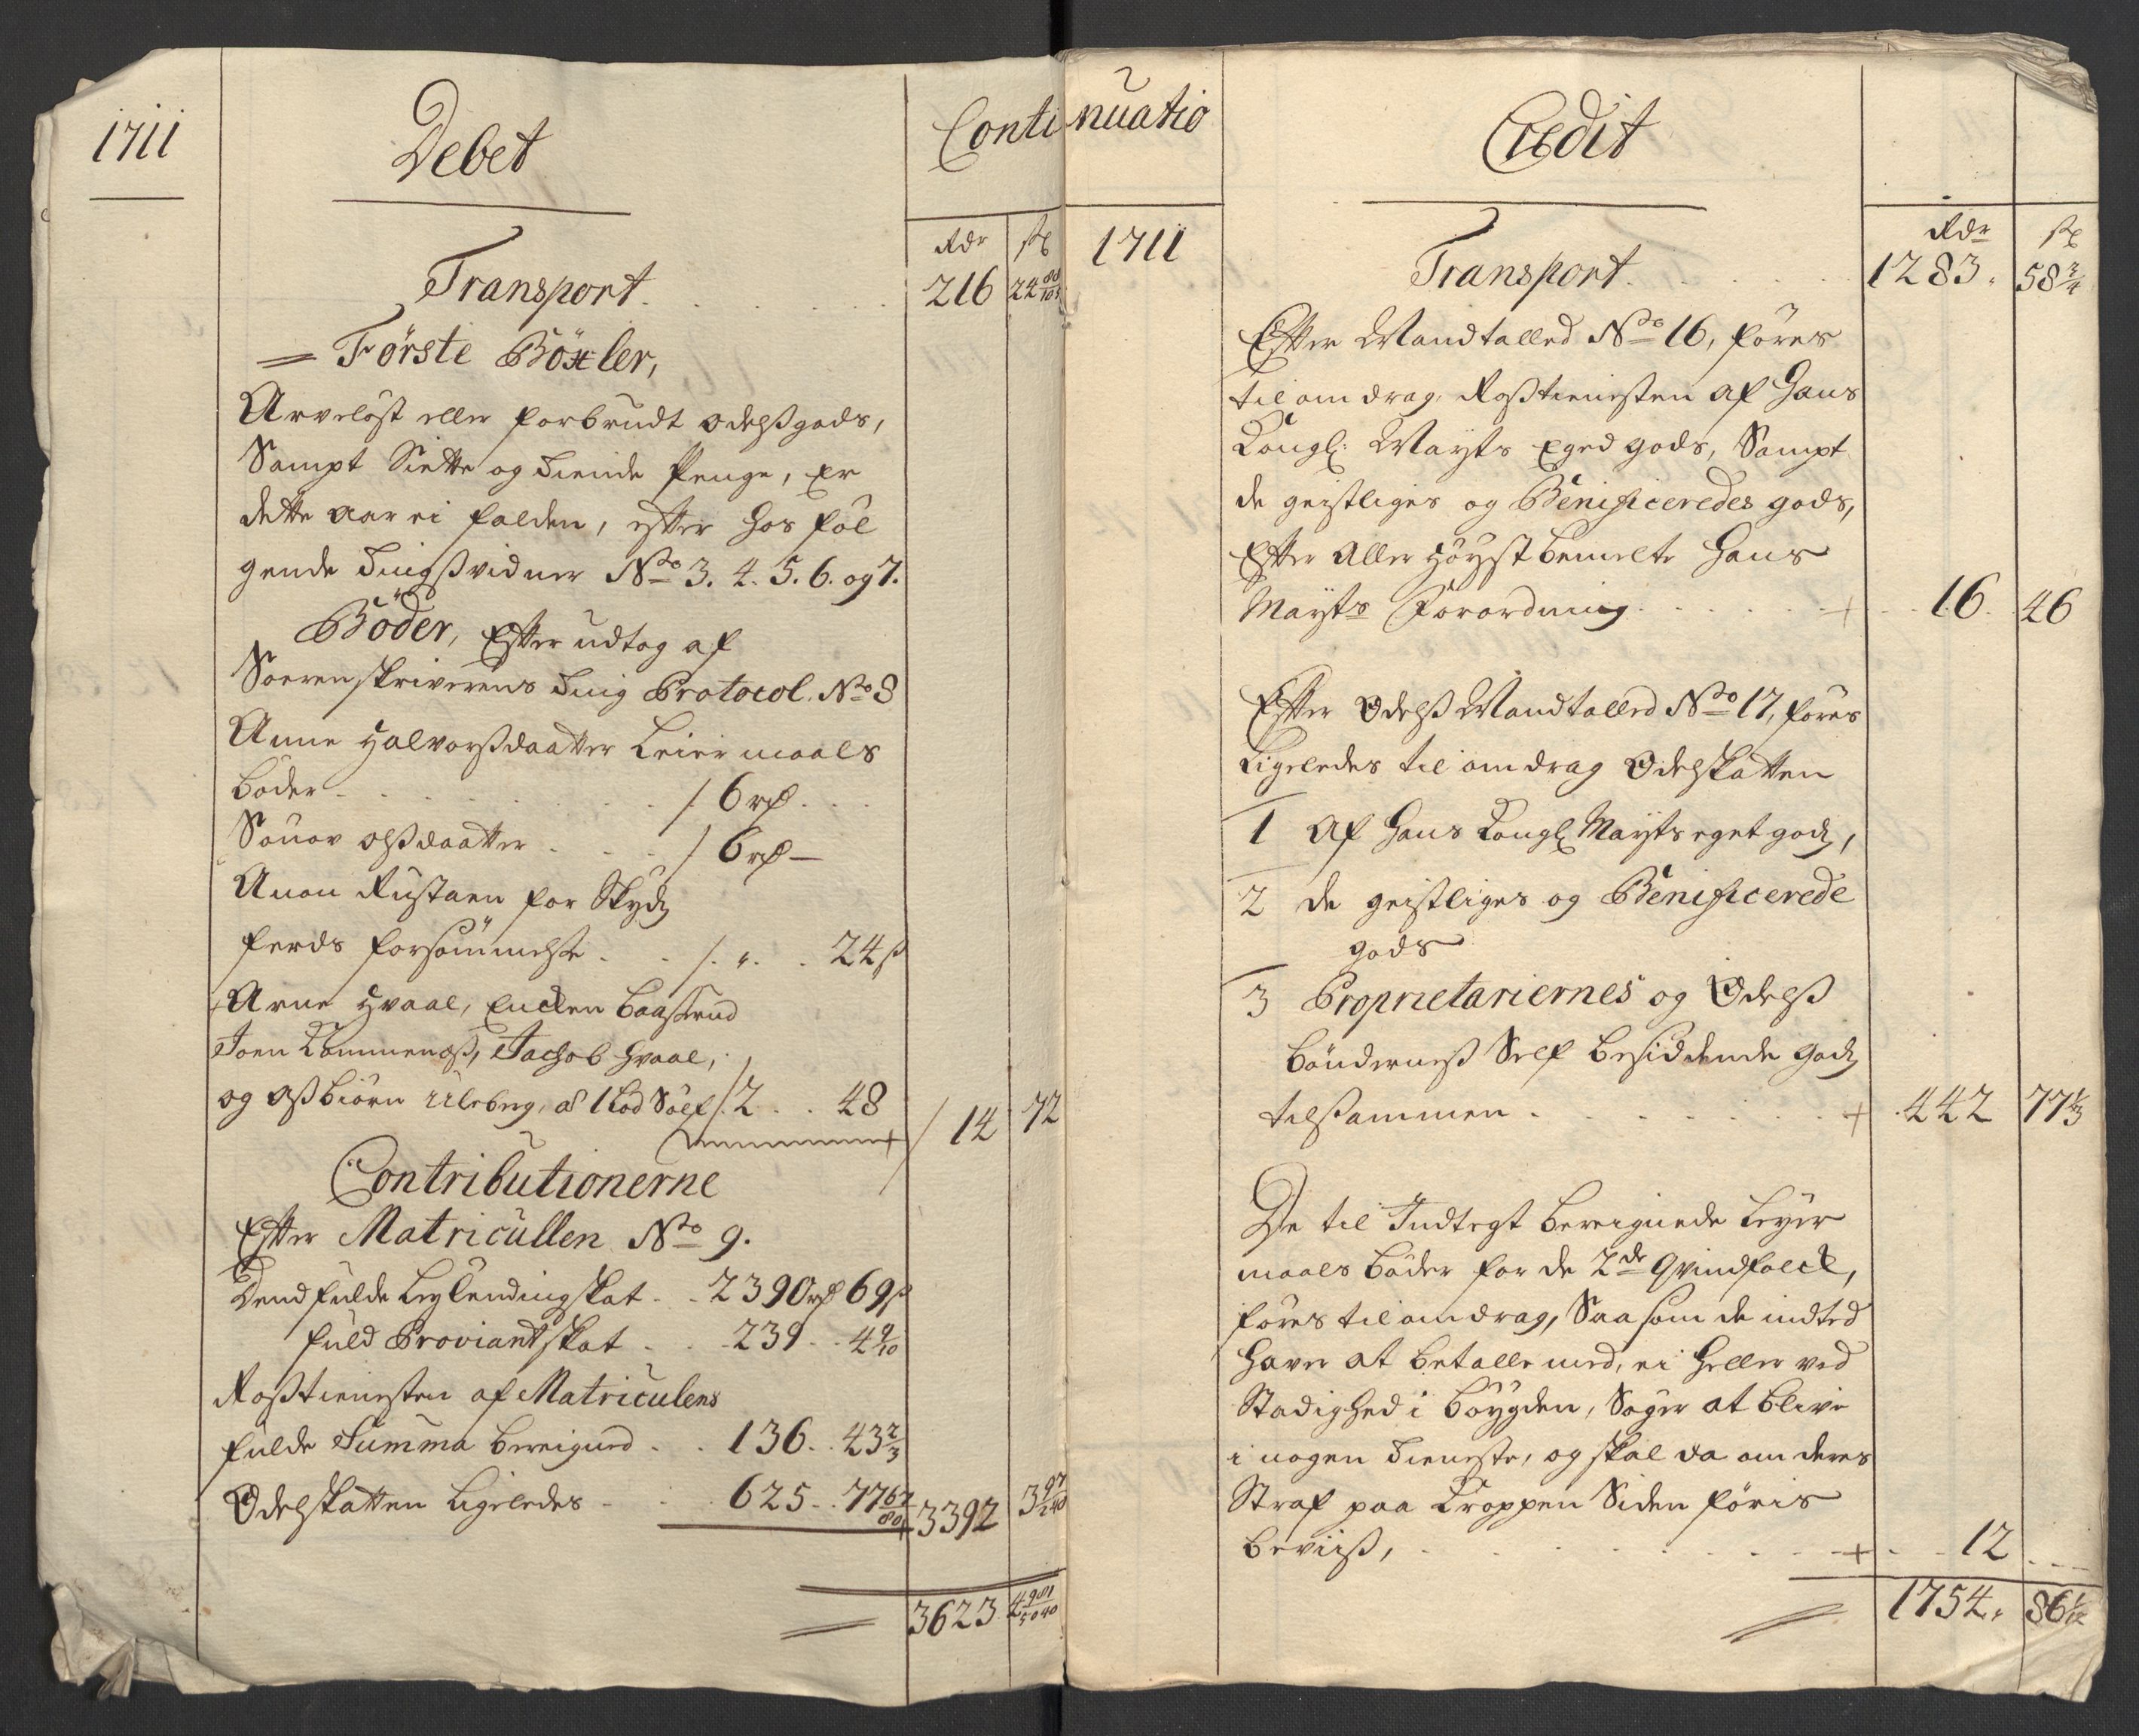 1711
Debet
Conti
Rdr ß
Transport 216 24 88/105
Förste Böxler,
Arveløst eller forbrudt odelsgods,
Sampt Siette og Tiende Penge, Er
dette aar ei falden, efter hos föl
gende Tingßvidner No 3. 4. 5. 6. og 7.
Böder, Efter udtog af
Sorenskriverens Ting Protocol No 8
Anne Halvorßdaatter Leiermaals
böder 6 rd
olßdaatter 6 rd
Rustaen for Skydz
ferds forsömmelse 24 ß
Arne Hvaal,
Joen Jachob Hvaal,
og Aßbiörn Uleberg, a 1 Lod Sölf 2 48 14 72
Contributionerne
Efter Matricüllen No 9.
Dend fulde Leylendingskat 2390 rd 69 ß
fuld Proviantskat 239 4 9/10
Roßtienesten af Matriculens
fulde Summa bereigned 136 43 2/3
Odelskatten ligeledes 625 77 67/80 3392 3 97/240
3623 4 981/5040
nuatio
Credit
1711
Rdr ß
Transport 1283 58 3/4
Efter Mandtalled No 16, föres
til omdrag Roßtienisten af Hans
Kongl: Mayts Eged gods, Sampt
de geistliges og Benificeredes gods,
Efter Aller Höystbemelte Hans
Mayts Forordning 16 46
Efter Odelß Mandtalled No 17, föres
Ligeledes til omdrag Odelskatten
1 Af Hans Kongl Mayts eget godz,
2 de geistliges og Benificerede
gods
3 Proprietariernes og Odelß
böndernes Self besiddende godz
tilsammen 442 77 1/3
De til Indtegt bereignede Leyer
maals böder for de 2de Qvindfolck,
föres til omdrag, Saa som de indted
haver at betalle med, ei heller ved
Stadighed i böygden, Söger at blive
i nogen Tieneste, og skal da om deres
Straf paa Kroppen Siden föris
beviiß, 12
1754 86 1/12